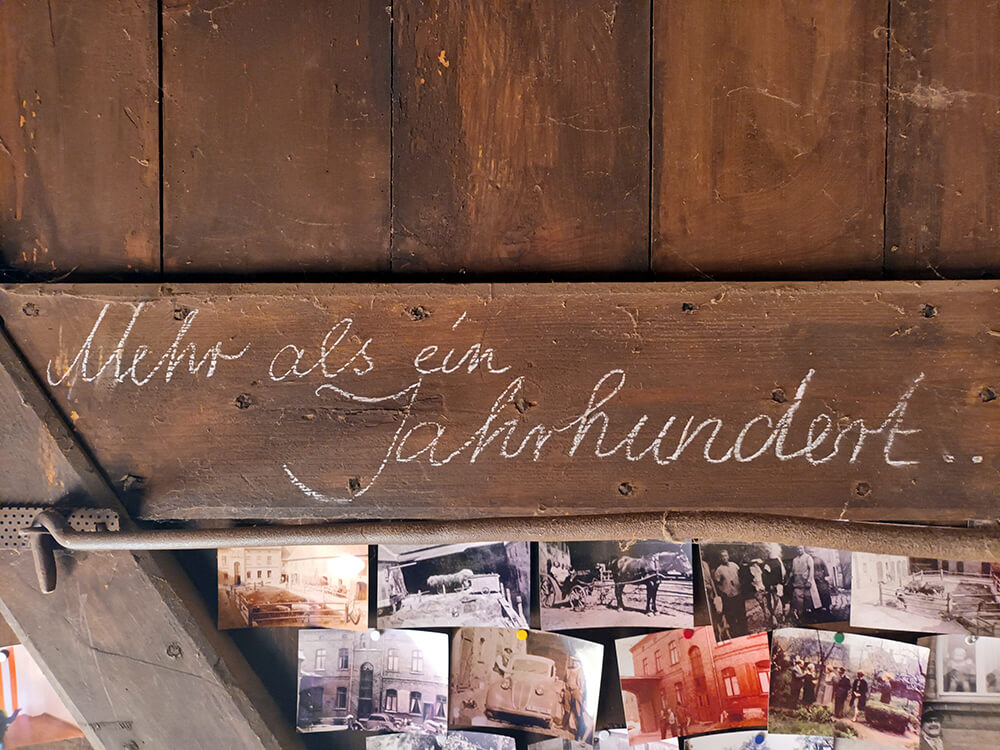 Mehr als ein
Jahrhundert...